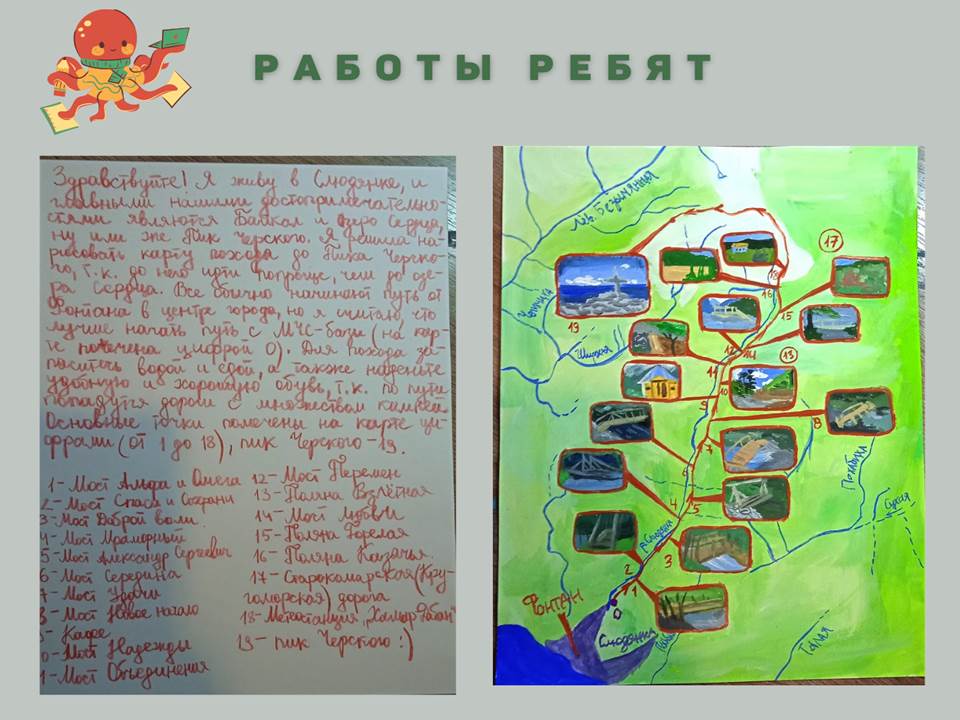 РАБОТЫ РЕБЯТ
Здравствуйте! Я живу в Слюдянке, и
главными нашими достопримечательно-
стями являются Байкал и озеро Сердца,
ну или же Пик Черского. Я решила на-
рисовать карту похода до Пика Черско-
го, т.к. до него идти попроще, чем до озе-
ра Сердца. Все обычно начинают путь от
Фонтана в центре города, но я считаю, что
лучше начать путь с МЧС-базы (на кар-
те помечена цифрой 0). Для похода за-
паситесь водой и едой, а также наденьте
удобную и хорошую обувь, т.к. по пути
попадутся дороги с множеством камней
Основные точки помечены на карте ци-
фрами (от 1 до 18), пик Черского-19.
1-Мост Альфа и Омега
2-Мост Спаси и Сохрани
3-Мост Доброй воли
4-Мост Мраморный
5-Мост Александр Сергеевич
6-Мост Середина
7-Мост Удачи
8-Мост Новое начало
9-Кафе
0-Мост Надежды
1-Мост Объединения
12-Мост Перемен
13-Поляна Взлётная
14-Мост Любви
15-Поляна Горелая
16-Поляна Казачья
17-Старокомарская(Кру-
гоморская) дорога
18-Метеостанция „Хамар-Дабан"
19-пик Черского :)
Лев. Безымянная
17
19
18
16
15
Широкая
12
14
13
11
10
9
8
7
6
Похабиха
4
5
Сухая
р. Слюдянка
3
2
1
0
Фонтан
Слюдянка
Талая